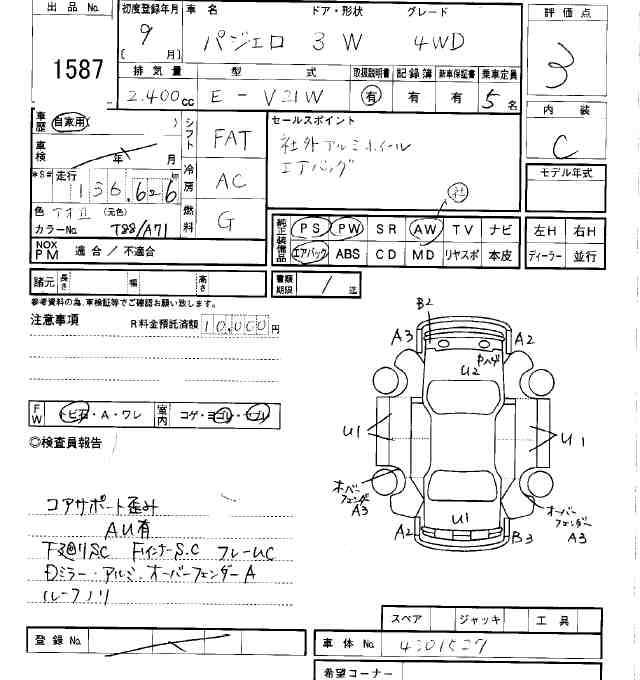 出品No. 初度登録年月 車名 ドア・形状 グレード 評価点
1587 9 [ 月] パジェロ 3W 4WD 3
排気量 型式 取扱説明書 記録簿 新車保証書 乗車定員
2.400cc E-V21W 有 有 有 5名 内装
C
車歴 自家用( ) シフト FAT セールスポイント
社外アルミホイール
車検 年 月 エアバッグ モデル年式
*S# 走行 136,626 冷房 AC 社
色 (元色) 燃料 G 純正装備品 PS PW SR AW TV ナビ 左H 右H
カラーNo. T88/A71 エアバック ABS CD MD リヤスポ 本皮 ディーラー 並行
NOX PM 適合/不適合
諸元 長さ 幅 高さ 書類期限 / 迄
参考資料の為、車検証等でご確認お願い致します。
注意事項 R料金預託済額 10,000円
B2
A3 A2
U2
FW トビ石・A・ワレ 室内 コゲ・ヨゴレ・ヤブレ
U1 U1
◎検査員報告
オーバーフェンダーA3 オーバーフェンダーA3
コアサポート歪み
U1
AU有 A2 B3
下廻りSC FインナーS.C フレームC
Dミラー・アルミ・オーバーフェンダーA
ルーフノリ
スペア ジャッキ 工具
登録No. 車体No. 4301527
希望コーナー